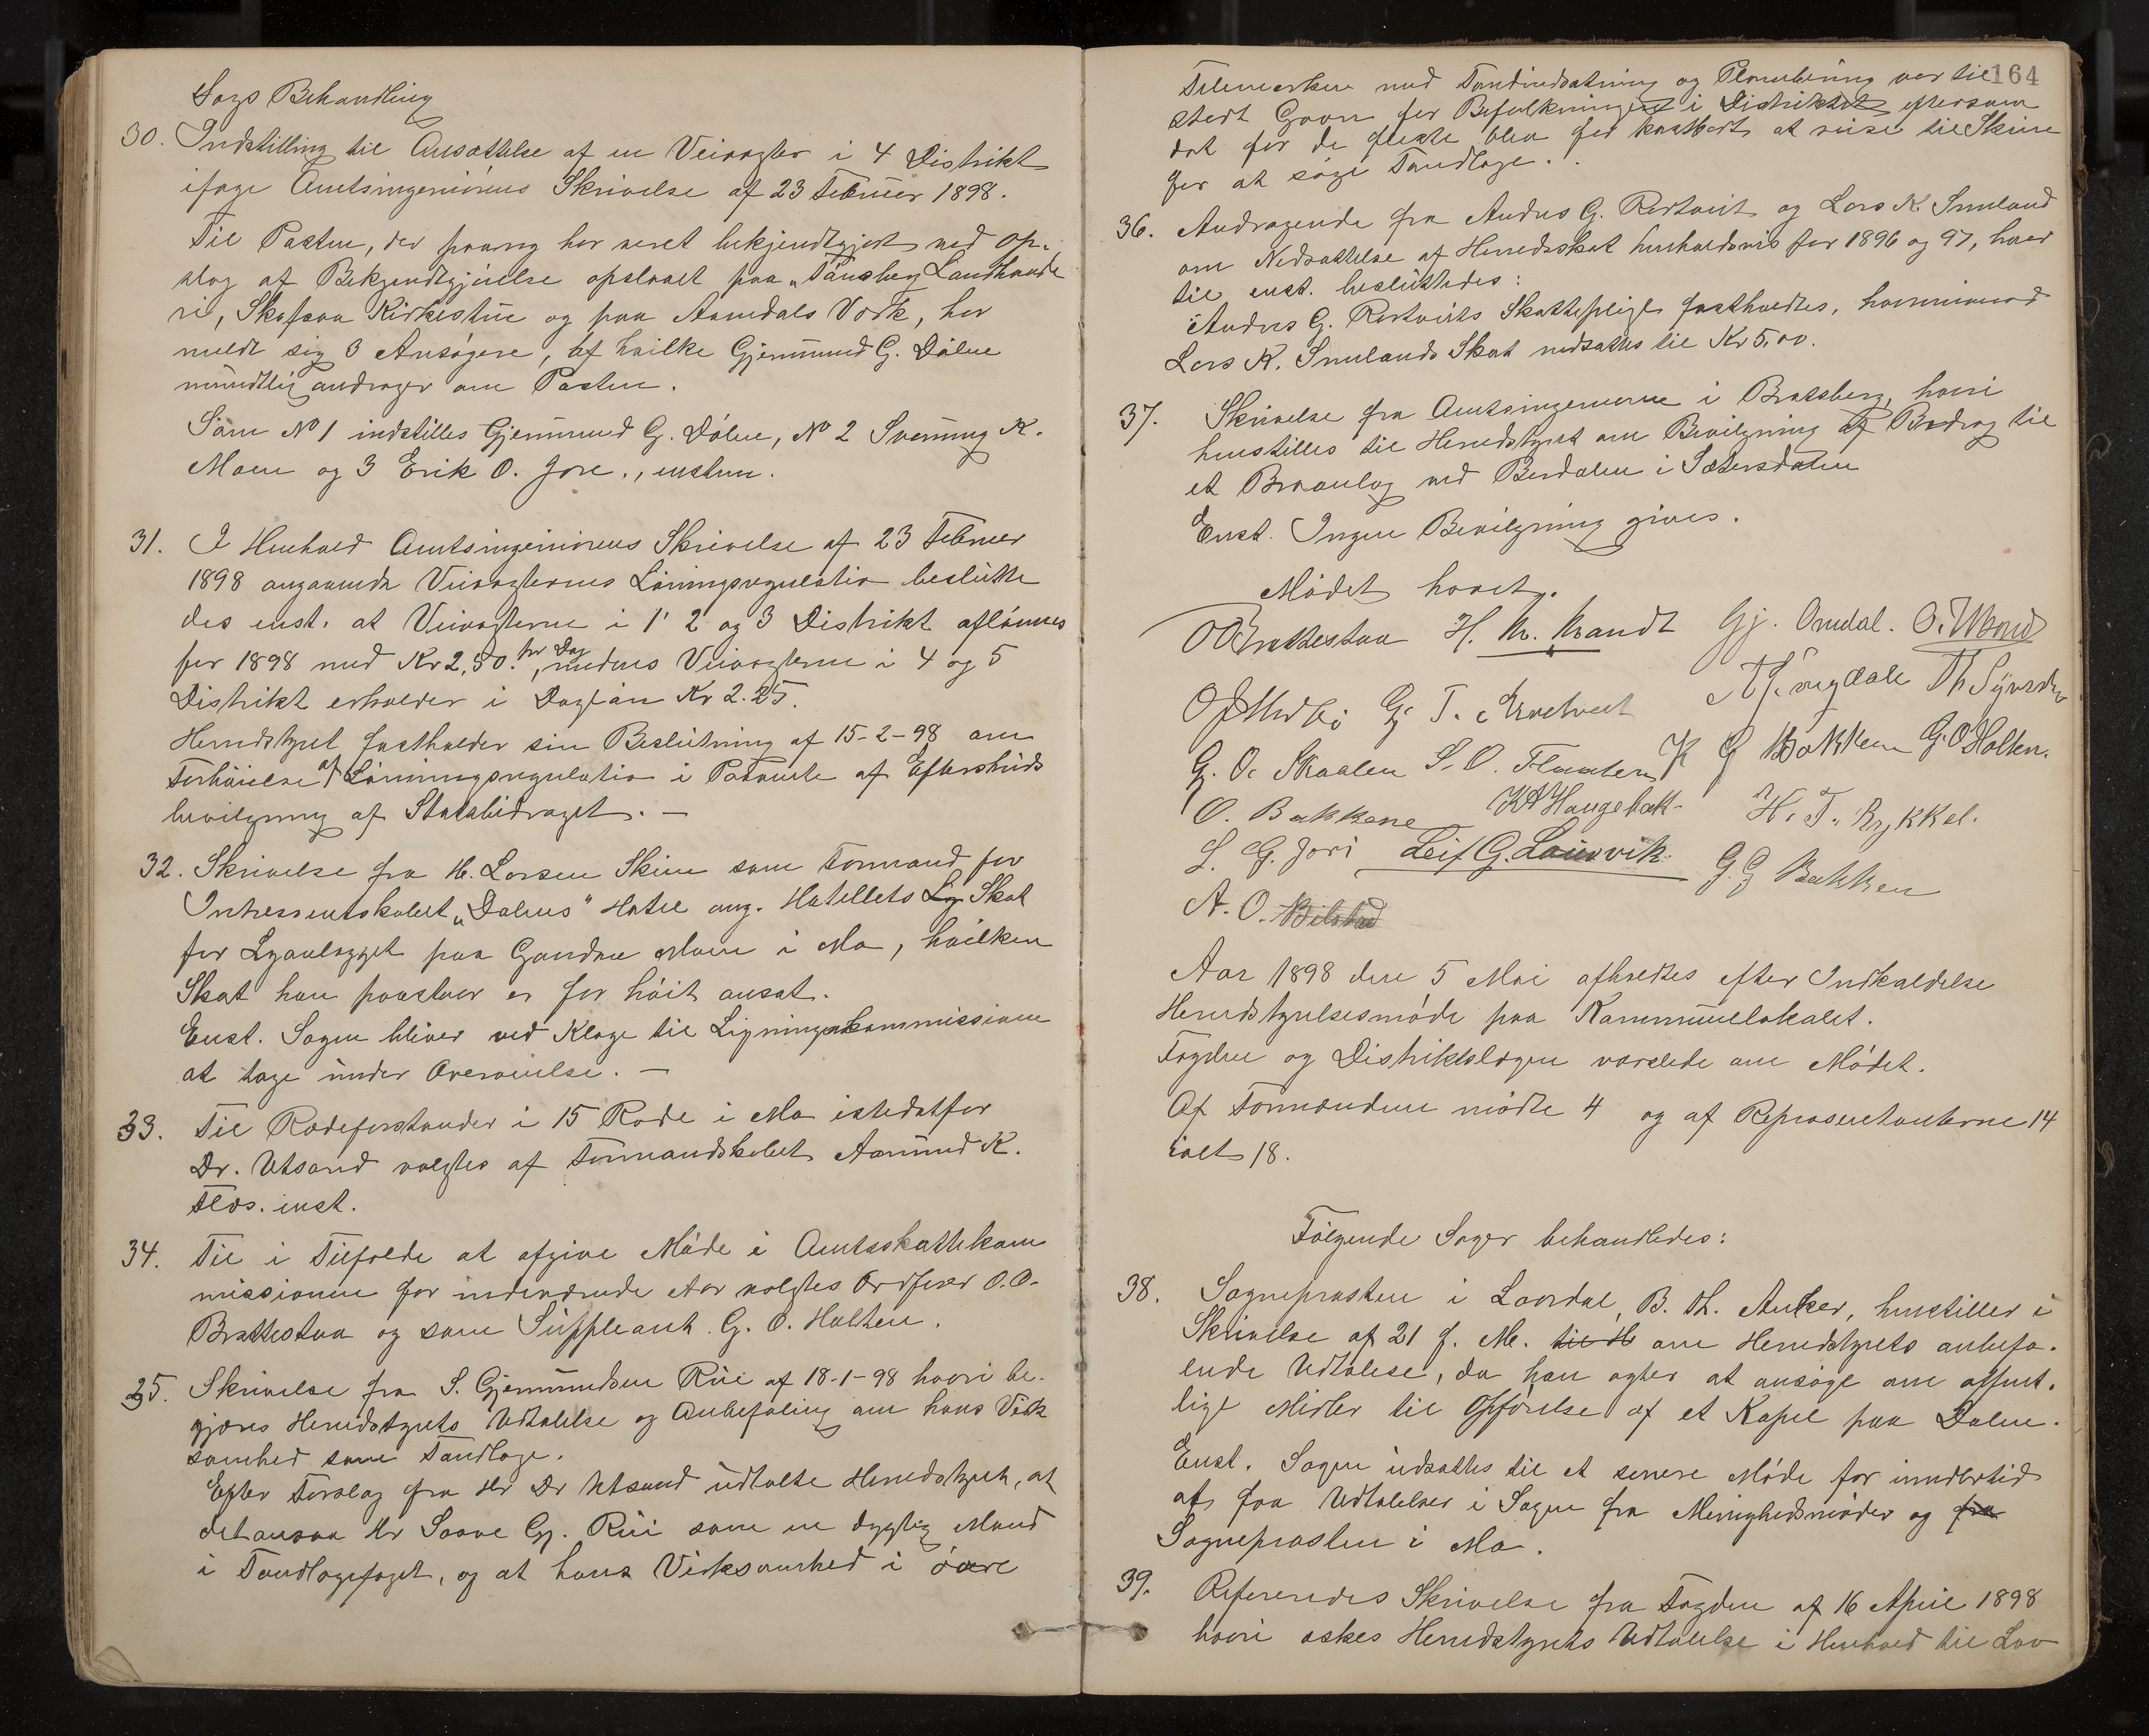 Sags Behandling
30. Indstilling til Ansættelse af en Veivogter i 4 Distrikt
iføge Amtsingeniørens Skrivelse af 23 Februar 1898.
Til Posten, der paany har været bekjendtgjort ved Op-
slag af Bekjendtgjørelse opslaaet paa "Tønsberg Landhande
ri, Skafsaa Kirkestue og paa Aamdals Værk, har
meldt sig 3 Ansøgere, af hvilke Gjermund G. Dølen
mundtlig andrager om Posten.
Som No 1 indstilles Gjermund G. Dølen, No 2 Svenung K.
Moen og 3 Erik O. Jore., enstem.
31. I Henhold Amtsingeniørens Skrivelse af 23 Februar
1898 angaaende Veivogternes Lønningsregulativ beslutte
des enst. at Veivogterne i 1' 2 og 3 Distrikt aflønnes
for 1898 med Kr 2,50. pr Dag, medens Veivogterne i 4 og 5
Distrikt erholder i Dagløn Kr 2.25.
Herredstyret fastholder sin Beslutning af 15-2-98 om
Forhøielse af Lønningsregulativ i Paavente af Efterskuds
bevilgning af Statsbidraget. —
32. Skrivelse fra H. Larsen Skien som Formand for
Intressentskabet "Dalens" Hotel ang. Hotellets Lig Skat
for Lysanlægget paa Gaarden Moen i Mo, hvilken
Skat han paastaar er for høit ansat.
Enst. Sagen bliver ved Klage til Ligningskommissionen
at tage under Overveielse. —
33. Til Rodeforstander i 15 Rode i Mo istedatfor
Dr. Utsond valgtes af Formandskabet Aamund K.
Flos. enst.
34. Til i Tilfælde at afgive Møde i Amtsskattekom
missionen for indeværende Aar valgtes Ordfører O.O.
Brattestaa og som Suppleant G. O. Holten.
35. Skrivelse fra S. Gjermundsen Rui af 18-1-98 hvori be-
gjæres Herredstyrets Udtalelse og Anbefaling om hans Virk
somhed som Tandlæge.
Efter Forslag fra Hr Dr Utsond udtalte Herredstyret, at
det ansaa Hr Saave Gj. Rui som en dygtig Mand
i Tandlægefaget, og at hans Virksomhed i øvre
164
Telemarken med Tandindsætning og Plombering var til
stort Gavn for Befolkningen i Distriktet eftersom
det for de fleste blev for kostbart at reise til Skien
for at søge Tandlæge.
36. Andragende fra Andres G. Rortveit og Lars K. Smeland
om Nedsættelse af Herredsskat henholdsvis for 1896 og 97, hvor
til enst. besluttedes:
Andres G. Rortveits Skattepligt fastholdtes, hvorimod
Lars K. Smelands Skat nedsattes til Kr 5,00.
37. Skrivelse fra Amtsingeniøren i Bratsberg, hvori
henstilles til Herredstyret om Bevilgning af Bidrag til
et Broanlæg ved Berdalen i Sætersdalen
Enst. Ingen Bevilgning gives.
Mødet hævet.
OOBrattestaa H. Kr. Krandt Gj. Omdal. O. Utsond
G. O. Skaalen S. O. Flaaten K G Bakken G. O Holten.
O. Bakkene KA Haugebak H. T. Rykkel.
S. G. Jori Leif G. Laurvik G. G Bakken
A. O. Bilstad
Aar 1898 den 5 Mai afholdtes efter Indkaldelse
Herredstyrelsesmøde paa Kommunelokalet.
Fogden og Distriktslægen varslede om Mødet.
Af Formændene mødte 4 og af Repræsentanterne 14
ialt 18.
Følgende Sager behandledes:
38. Sognepræsten i Laardal, B. Th. Anker, henstiller i
Skrivelse af 21 f. M. til H om Herredstyrets anbefa-
lende Udtalelse, da han agter at ansøge om offent-
lige Midler til Opførelse af et Kapel paa Dalen.
Enst. Sagen udsættes til et senere Møde for imidlertid
at faa Udtalelser i Sagen fra Menighedsmøder og fra
Sognepræsten i Mo.
39. Refereredes Skrivelse fra Fogden af 16 April 1898
hvori æskes Herredstyrets Udtalelse i Henhold til Lov